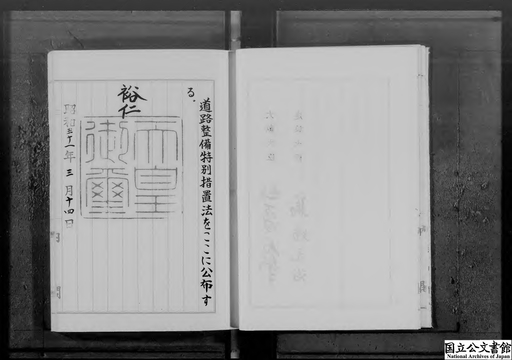 道路整備特別措置法をここに公布す
る。
裕仁
天皇
御璽
昭和三十一年三月十四日
国立公文書館
National Archives of Japan